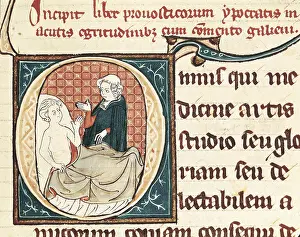 Incipit liber pronosticorum ypocratis in
acutis egritudinibz cum cōmento galieni
mnis qui me
dicine artis
studio seu glo
riam seu de
lectabilem a
consequi de